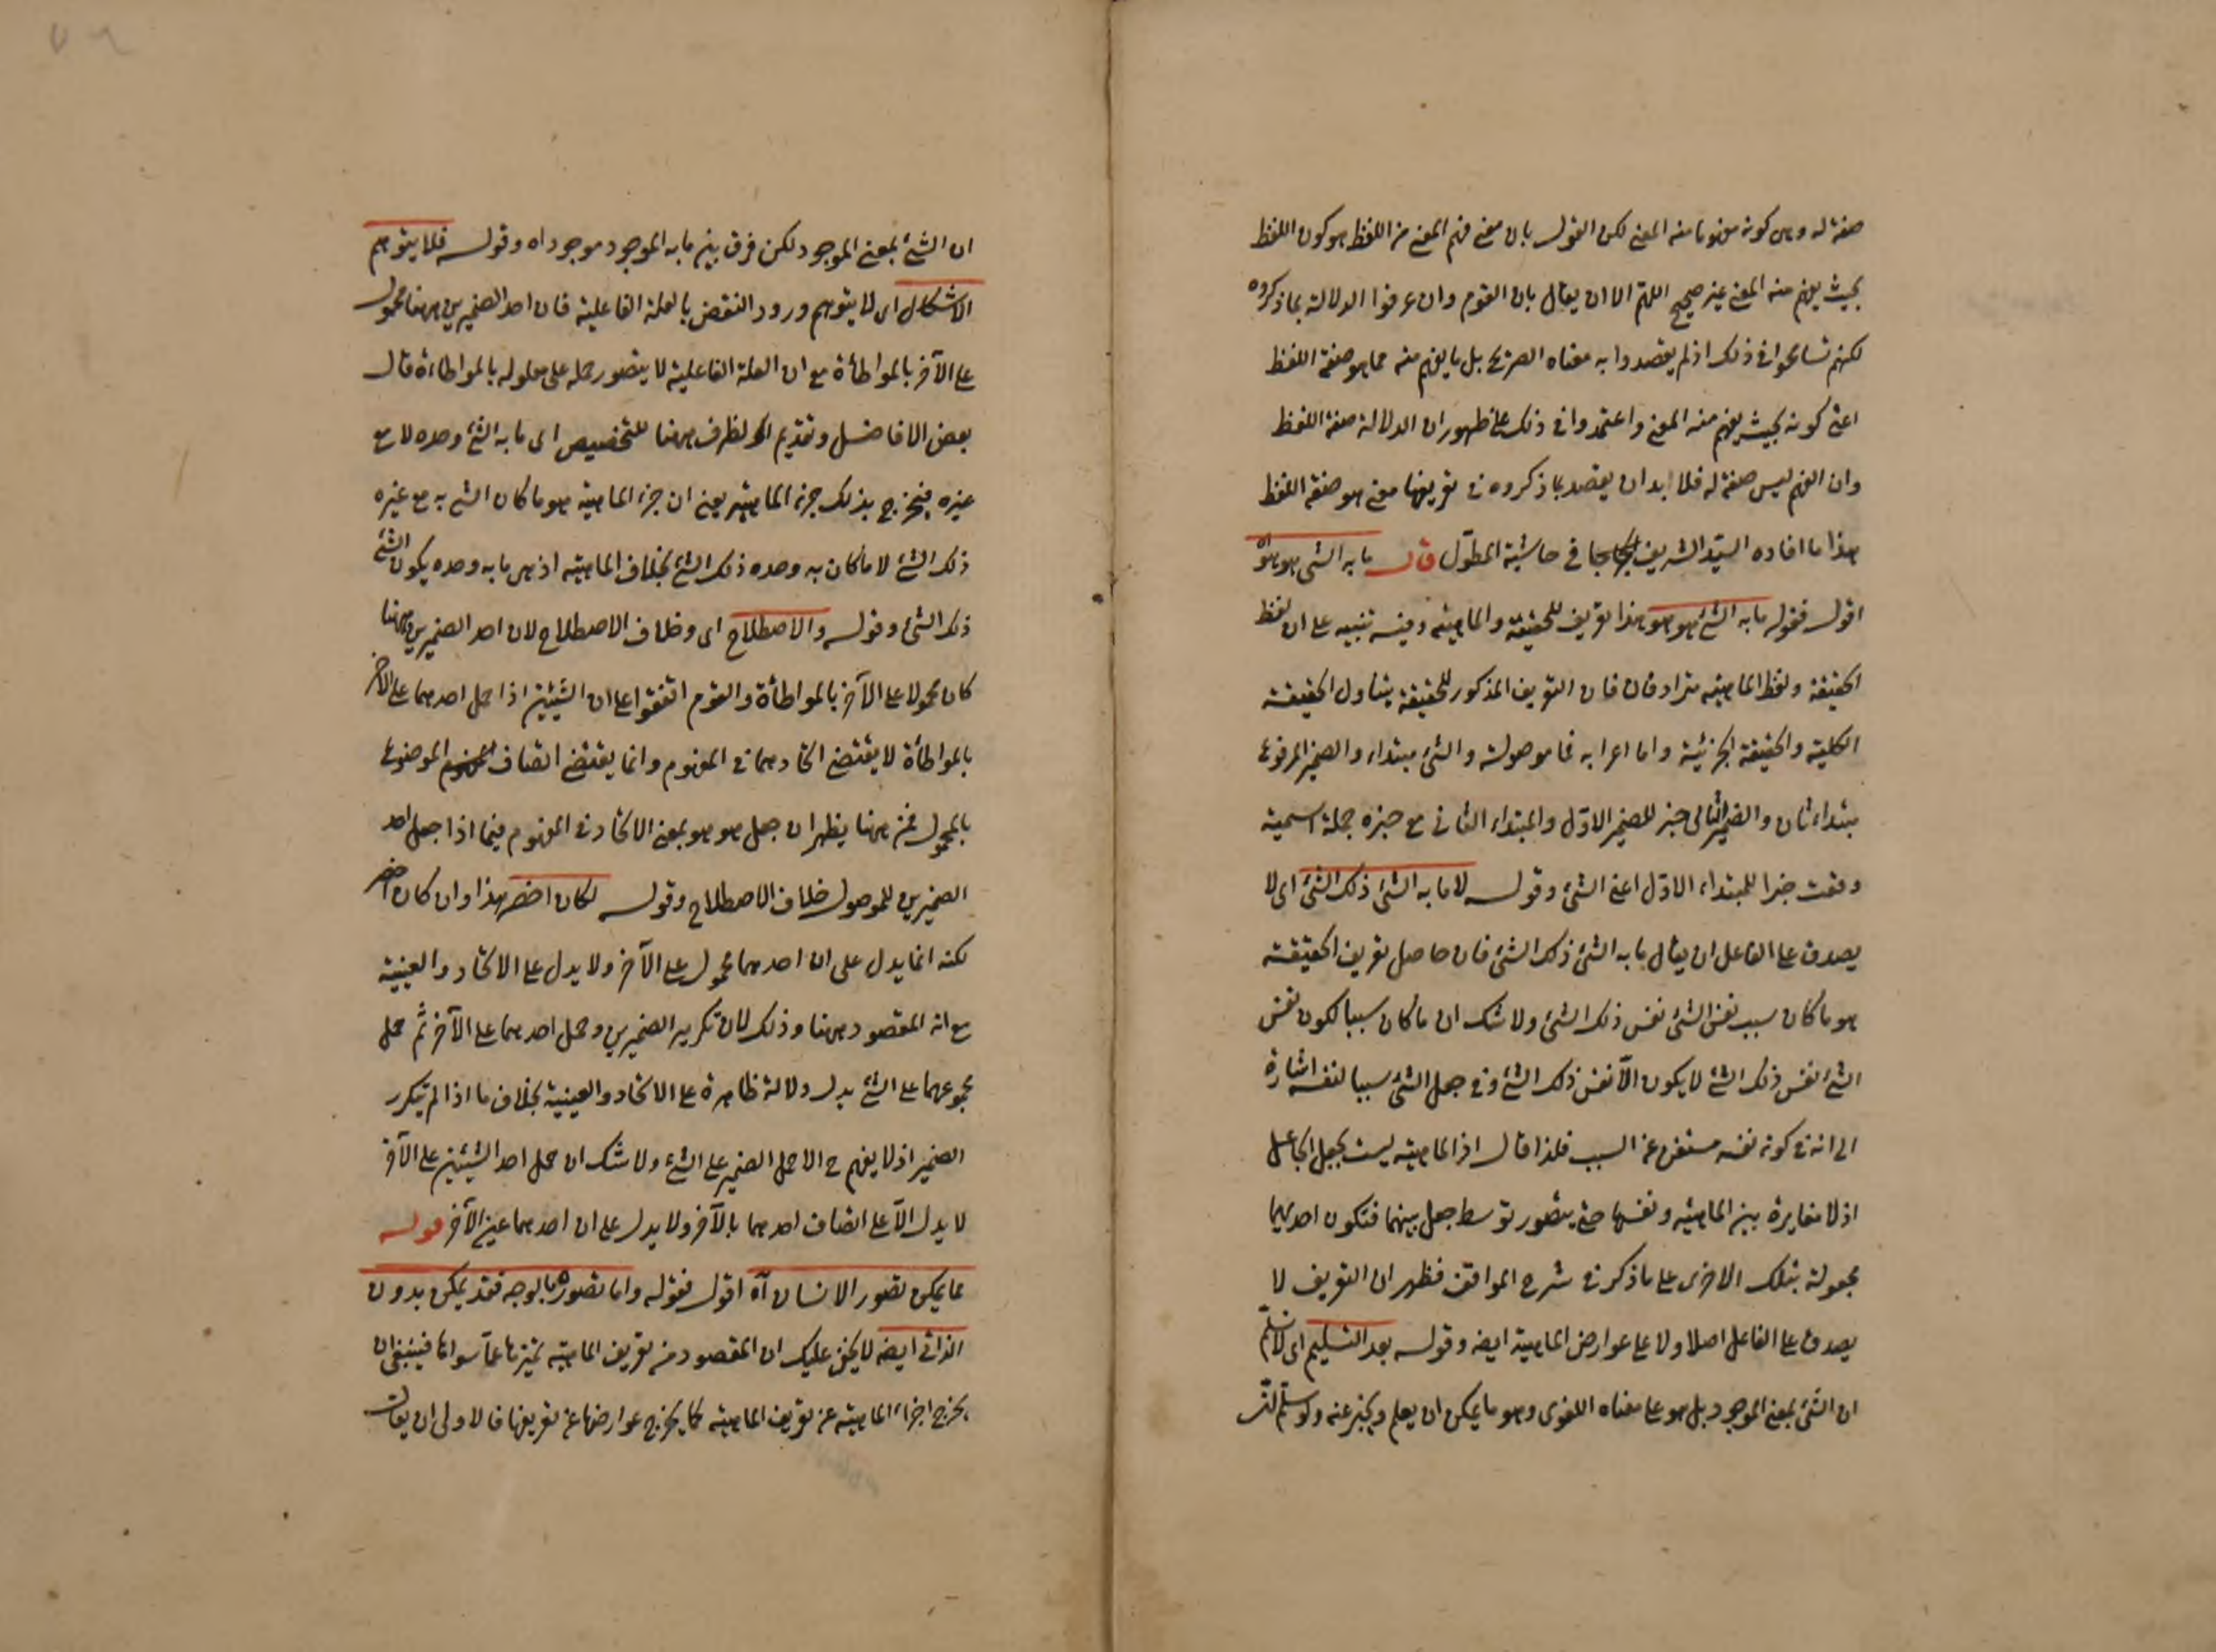 صفة له وهى كونه مفهوما منه المعنى لكن القول بان معنى فهم المعنى من اللفظ هو كون اللفظ
بحيث يفهم منه المعنى غير صحيح اللهم الا ان يقال بان القوم وان عرفوا الدلالة بما ذكروه
لكنهم تسامحوا فى ذلك اذ لم يقصدوا به معناه الصريح بل ما يفهم منه مما هو صفة اللفظ
اعنى كونه بحيث يفهم منه المعنى واعتمدوا فى ذلك على ظهور ان الدلالة صفة اللفظ
وان الفهم ليس صفة له فلا بد ان يقصد بما ذكروه فى تعريفها معنى هو صفة اللفظ
هذا ما افاده السيد الشريف فى حاشية المطول قال ما به الشئ هو هو
اقول فقوله ما به الشئ هو هو هذا تعريف للحقيقة والماهية وفيه تنبيه على ان لفظ
الحقيقة ولفظ الماهية مترادفان فان التعريف المذكور للحقيقة يتناول الحقيقة
الكلية والحقيقة الجزئية واما اعرابه فما موصولة والشئ مبتداء والضمير المرفوع
مبتداء ثان والضمير الثانى خبر للضمير الاول والمبتداء الثانى مع خبره جملة اسمية
وقعت خبرا للمبتداء الاول اعنى الشئ وقوله لا ما به الشئ ذلك الشئ اى لا
يصدق على الفاعل ان يقال ما به الشئ ذلك الشئ فان حاصل تعريف الحقيقة
هو ما كان سبب نفس الشئ نفس ذلك الشئ ولا شك ان ما كان سببا لكون نفس
الشئ نفس ذلك الشئ لا يكون الا نفس ذلك الشئ وفى جعل الشئ سببا لنفسه اشارة
الى انه فى كونه نفسه مستغن عن السبب فلذا قال اذ الماهية ليست بجعل الجاعل
اذ لا مغايرة بين الماهية ونفسها حتى يتصور توسط جعل بينهما فتكون احديهما
مجعولة بتلك الاخرى على ما ذكر فى شرح المواقف فظهر ان التعريف لا
يصدق على الفاعل اصلا ولا على عوارض الماهية ايضه وقوله بعد التسليم اى لا نسلم
ان الشئ بمعنى الموجود بل هو على معناه اللغوى وهو ما يمكن ان يعلم ويخبر عنه ولو سلم
ان الشئ بمعنى الموجود لكن فرق بين ما به الموجود موجود اه وقوله فلا يتوهم
الاشكال اى لا يتوهم ورود النقض بالعلة الفاعلية فان احد الضميرين ههنا محمول
على الآخر بالمواطأة مع ان العلة الفاعلية لا يتصور حمله على معلوله بالمواطاءة قال
بعض الافاضل وتقديم الظرف ههنا للتخصيص اى ما به الشئ وحده لا مع
غيره فيخرج بذلك جزء الماهية يعنى ان جزء الماهية هو ما كان الشئ به مع غيره
ذلك الشئ لا ما كان به وحده ذلك الشئ بخلاف الماهية اذ هى ما به وحده يكون الشئ
ذلك الشئ وقوله والاصطلاح اى وخلاف الاصطلاح لان احد الضميرين ههنا
كان محمولا على الآخر بالمواطأة والقوم اتفقوا على ان الشيئين اذا حمل احدهما على الآخر
بالمواطأة لا يقتضى اتحادهما فى المفهوم وانما يقتضى اتصاف الموضوع
بالمحمول فمن ههنا يظهر ان جعل هو هو بمعنى الاتحاد فى المفهوم فيما اذا جعل احد
الضميرين للموصول خلاف الاصطلاح وقوله لكان اخصر هذا وان كان اخصر
لكنه انما يدل على ان احدهما محمول على الآخر ولا يدل على الاتحاد والعينية
مع انه المقصود ههنا وذلك لان تكرير الضميرين وحمل احدهما على الآخر ثم حمل
مجموعهما على الشئ يدل دلالة ظاهرة على الاتحاد والعينية بخلاف ما اذا لم يتكرر
الضمير اذ لا يفهم ح الا حمل الضمير على الشئ ولا شك ان حمل احد الشيئين على الآخر
لا يدل الا على اتصاف احدهما بالآخر ولا يدل على ان احدهما عين الآخر قوله
مما يمكن تصور الانسان آه اقول فقوله واما تصوره بالوجه فقد يمكن بدون
الذاتى ايضه لا يخفى عليك ان المقصود من تعريف الماهية تميزها عما سواها فينبغى ان
يخرج اجزاء الماهية عن تعريف الماهية كما يخرج عوارضها عن تعريفها فالاولى ان يقال